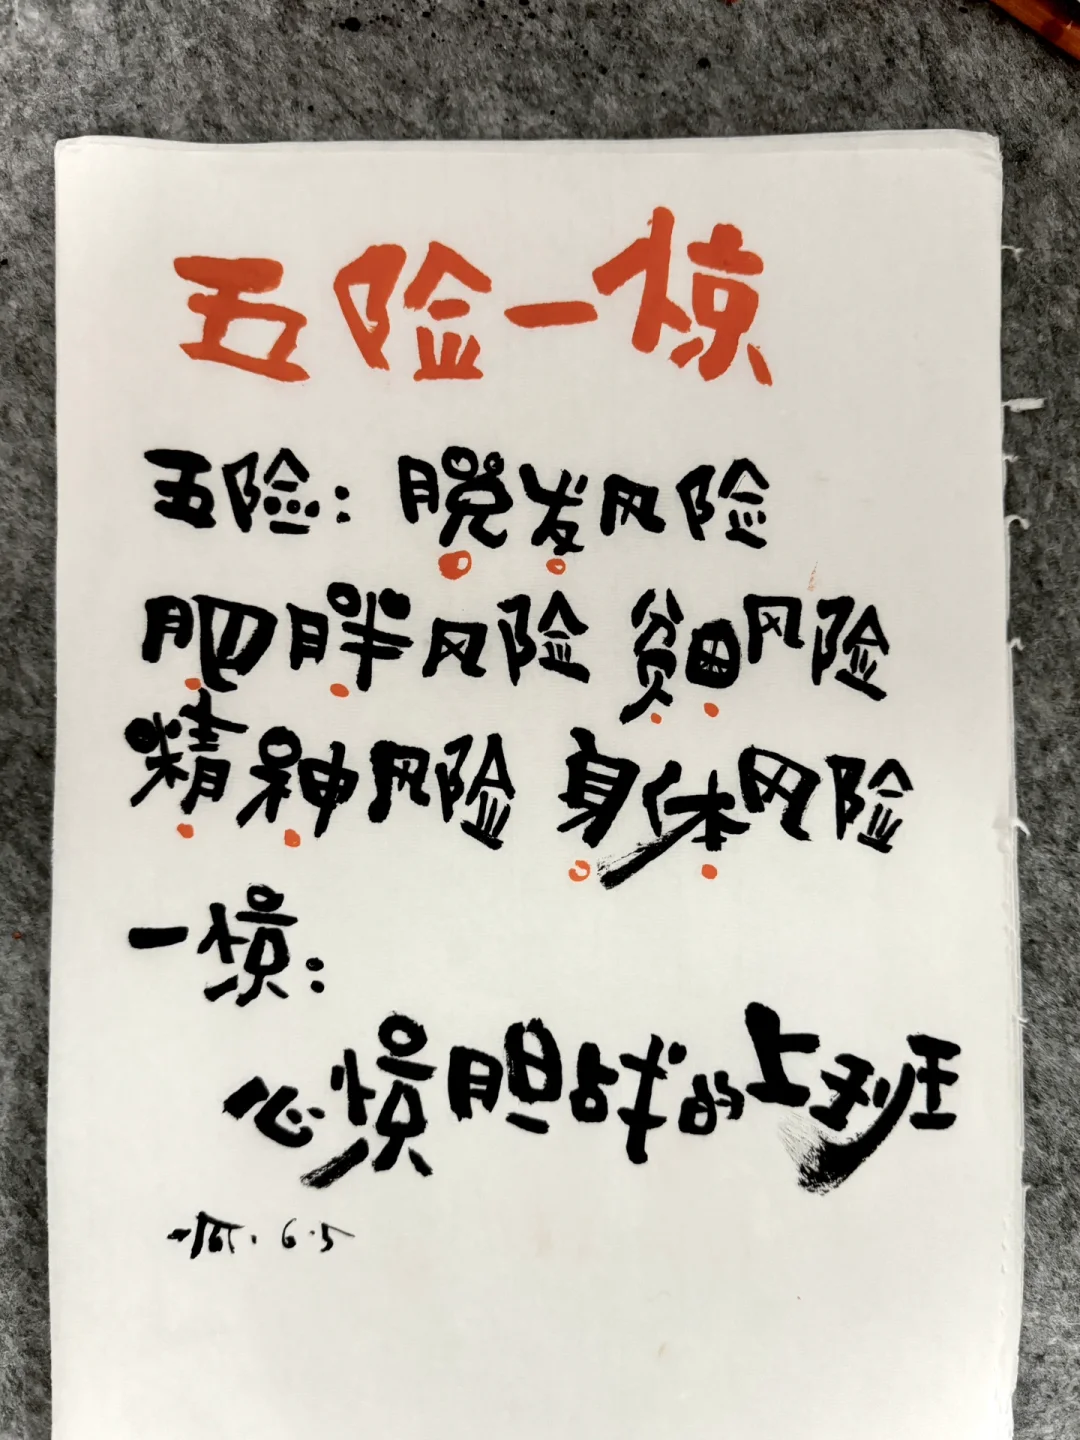 五险一惊
五险：脱发风险
肥胖风险 贫困风险
精神风险 身体风险
一惊：
心惊胆战的上班
6.5